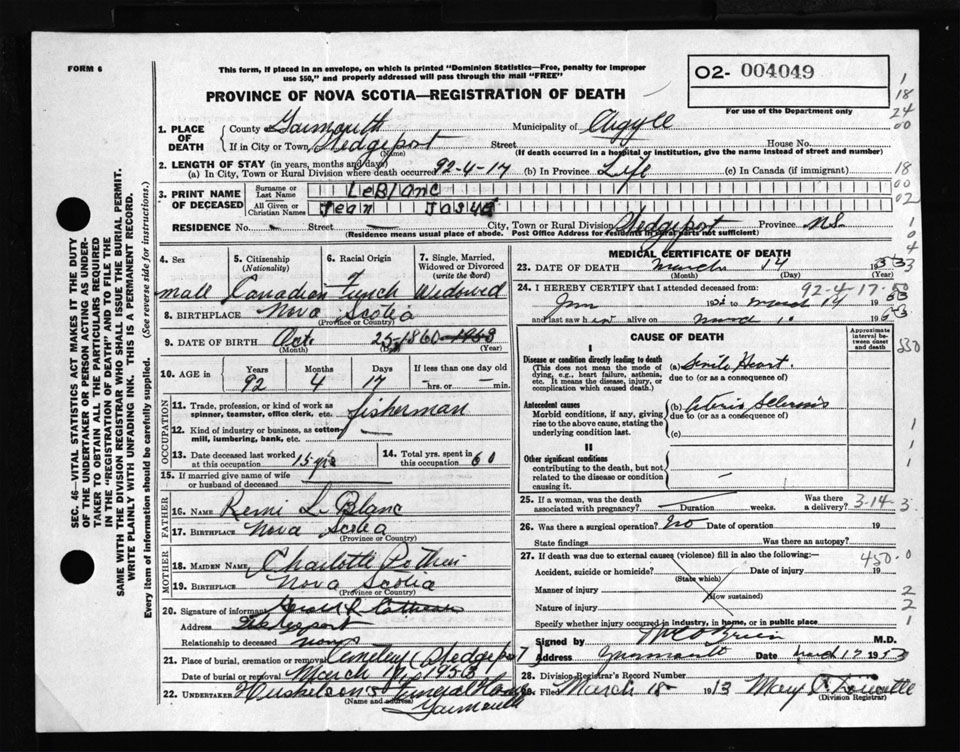 FORM 6
This form, if placed in an envelope, on which is printed "Dominion Statistics—Free, penalty for improper
use $50," and properly addressed will pass through the mail "FREE"
O2- 004049
PROVINCE OF NOVA SCOTIA—REGISTRATION OF DEATH
For use of the Department only
1. PLACE OF DEATH
County Yarmouth Municipality of Argyle
If in City or Town Wedgeport Street House No.
(Name) (If death occurred in a hospital or institution, give the name instead of street and number)
2. LENGTH OF STAY (in years, months and days)
(a) In City, Town or Rural Division where death occurred 92-4-17 (b) In Province Life (c) In Canada (if immigrant)
3. PRINT NAME OF DECEASED
Surname or Last Name LeBlanc
All Given or Christian Names Jean
RESIDENCE No. Street City, Town or Rural Division Wedgeport Province N.S.
(Residence means usual place of abode. Post Office Address for residents in rural parts not sufficient)
4. Sex
male
5. Citizenship
(Nationality)
Canadian
6. Racial Origin
French
7. Single, Married,
Widowed or Divorced
(write the word)
Widowed
8. BIRTHPLACE Nova Scotia
(Province or Country)
9. DATE OF BIRTH Oct. 25 1860
(Month) (Day) (Year)
10. AGE in
Years Months Days If less than one day
92 4 17 hrs. or min.
OCCUPATION
11. Trade, profession, or kind of work as
spinner, teamster, office clerk, etc. fisherman
12. Kind of industry or business, as cotton-
mill, lumbering, bank, etc.
13. Date deceased last worked
at this occupation 15 yrs
14. Total yrs. spent in
this occupation 60
15. If married give name of wife
or husband of deceased
FATHER
16. NAME Remi LeBlanc
17. BIRTHPLACE Nova Scotia
(Province or Country)
MOTHER
18. MAIDEN NAME Charlotte Pothier
19. BIRTHPLACE Nova Scotia
(Province or Country)
20. Signature of informant
Address Wedgeport
Relationship to deceased
21. Place of burial, cremation or removal Cemetery Wedgeport
Date of burial or removal March 1953
22. UNDERTAKER Funeral Home
(Name and address) Yarmouth
MEDICAL CERTIFICATE OF DEATH
23. DATE OF DEATH March 14 1953
(Month) (Day) (Year)
92-4-17
24. I HEREBY CERTIFY that I attended deceased from:
Jan 19 to March 14 1953
and last saw h alive on 1953
CAUSE OF DEATH
Approximate
interval
between onset
and death
I
Disease or condition directly leading to death
(This does not mean the mode of
dying, e.g., heart failure, asthenia,
etc. It means the disease, injury, or
complication which caused death.)
(a) Senile Heart
due to (or as a consequence of)
Antecedent causes
Morbid conditions, if any, giving
rise to the above cause, stating the
underlying condition last.
(b) Arterio Sclerosis
due to (or as a consequence of)
(c)
II
Other significant conditions
contributing to the death, but not
related to the disease or condition
causing it.
25. If a woman, was the death
associated with pregnancy? Duration weeks. Was there a delivery? 3-14-3
26. Was there surgical operation? No Date of operation 19
State findings Was there an autopsy?
27. If death was due to external causes (violence) fill in also the following:— 450.0
Accident, suicide or homicide? Date of injury 19
(State which)
Manner of injury
(How sustained)
Nature of injury
Specify whether injury occurred in industry, in home, or in public place
Signed by M.D.
Address Yarmouth Date March 17 1953
28. Division Registrar's Record Number
Filed March 18 Mary
(Division Registrar)
SEC. 46—VITAL STATISTICS ACT MAKES IT THE DUTY
OF THE UNDERTAKER OR PERSON ACTING AS UNDER-
TAKER TO OBTAIN ALL THE PARTICULARS REQUIRED
IN THE "REGISTRATION OF DEATH" AND TO FILE THE
SAME WITH THE DIVISION REGISTRAR WHO SHALL ISSUE THE BURIAL PERMIT.
WRITE PLAINLY WITH UNFADING INK. THIS IS A PERMANENT RECORD.
Every item of information should be carefully supplied. (See reverse side for instructions.)